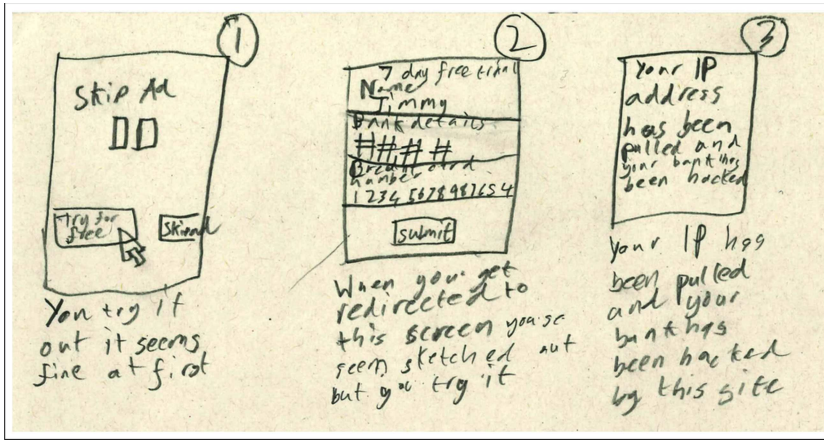 1
Skip Ad
Try for
free
Skip ad
You try it
out it seems
fine at first
2
7 day free trial
Name
Jimmy
Bank details
# # # #
Credit card
number
1234 5678987654
submit
When you get
redirected to
this screen you
seem sketched out
but you try it
3
Your IP
address
has been
pulled and
your bank has
been hacked
Your IP has
been pulled
and your
bank has
been hacked
by this site